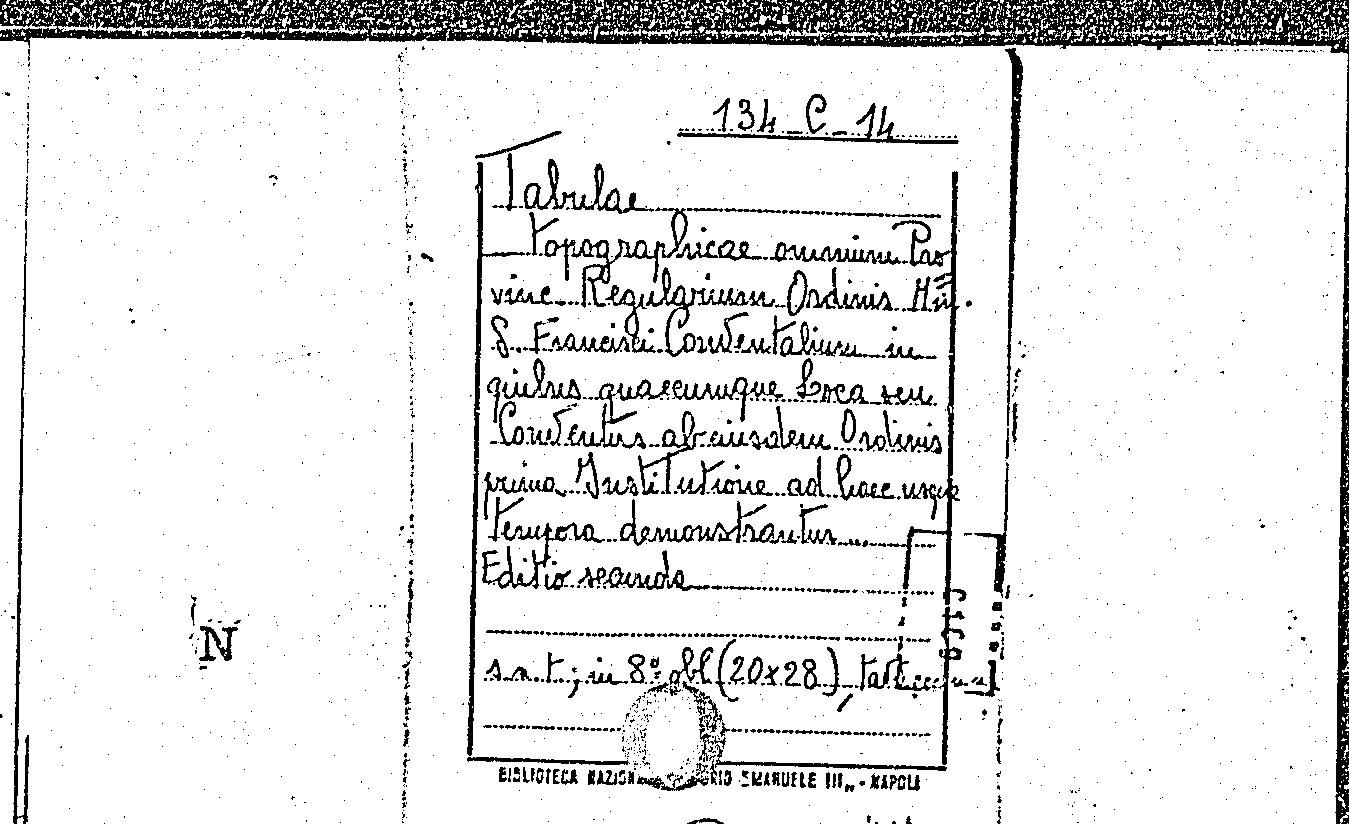 134_C_14
Tabulae
topographicae omnium Pro
vinc. Regularium Ordinis Min.
S. Francisci Conventalium in
quibus quaecumque Loca seu
Conventus ab eiusdem Ordinis
prima Institutione ad haec usque
tempora demonstrantur...
Editio secunda
s.n.t; in 8° obl (20x28),
BIBLIOTECA EMANUELE III„ - NAPOLI
N